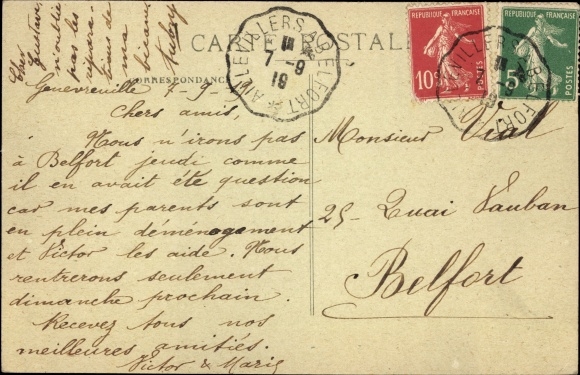 CARTE POSTALE
CORRESPONDANCE
AILLEVILLERS A BELFORT
7 - 9
19
REPUBLIQUE FRANÇAISE
10
POSTES
REPUBLIQUE FRANÇAISE
5
POSTES
Cher
Gustave,
n'oublie
pas les
répara-
tions de
ma
bécane
Victor
Genevreuille 7-9-19
Chers amis,
Nous n'irons pas
à Belfort jeudi comme
il en avait été question
car mes parents sont
en plein déménagement
et Victor les aide. Nous
rentrerons seulement
dimanche prochain.
Recevez tous nos
meilleures amitiés.
Victor & Marie
Monsieur Vial
25- Quai Vauban
Belfort